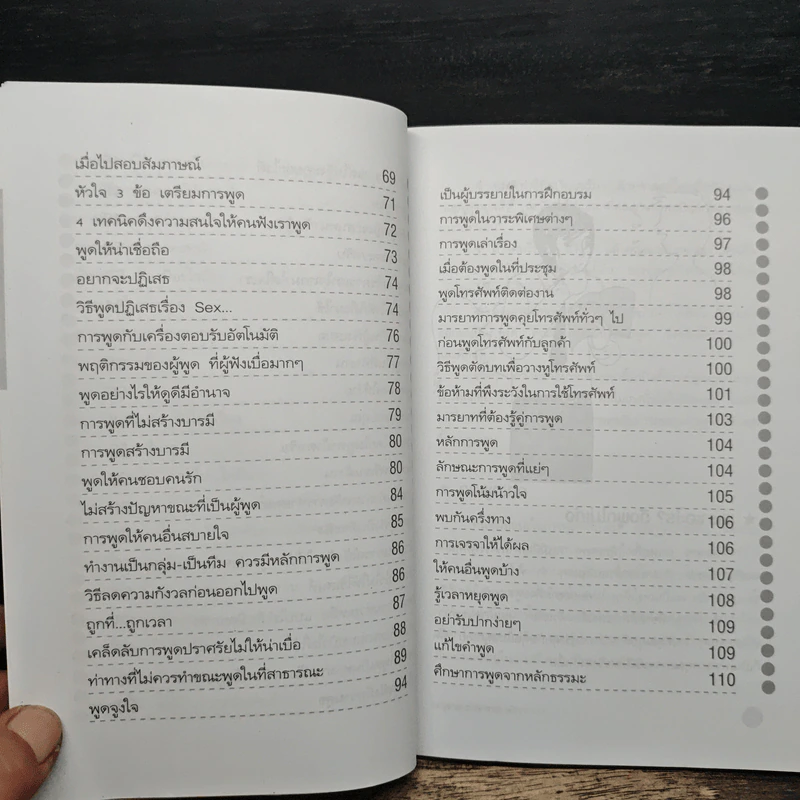 เมื่อไปสอบสัมภาษณ์ 69
หัวใจ 3 ข้อ เตรียมการพูด 71
4 เทคนิคดึงความสนใจให้คนฟังเราพูด 72
พูดให้น่าเชื่อถือ 73
อยากจะปฏิเสธ 74
วิธีพูดปฏิเสธเรื่อง Sex... 74
การพูดกับเครื่องตอบรับอัตโนมัติ 76
พฤติกรรมของผู้พูด ที่ผู้ฟังเบื่อมากๆ 77
พูดอย่างไรให้ดูดีมีอำนาจ 78
การพูดที่ไม่สร้างบารมี 79
การพูดสร้างบารมี 80
พูดให้คนชอบคนรัก 80
ไม่สร้างปัญหาขณะที่เป็นผู้พูด 84
การพูดให้คนอื่นสบายใจ 85
ทำงานเป็นกลุ่ม-เป็นทีม ควรมีหลักการพูด 86
วิธีลดความกังวลก่อนออกไปพูด 86
ถูกที่...ถูกเวลา 87
เคล็ดลับการพูดปราศรัยไม่ให้น่าเบื่อ 88
ท่าทางที่ไม่ควรทำขณะพูดในที่สาธารณะ 89
พูดจูงใจ 94
เป็นผู้บรรยายในการฝึกอบรม 94
การพูดในวาระพิเศษต่างๆ 96
การพูดเล่าเรื่อง 97
เมื่อต้องพูดในที่ประชุม 98
พูดโทรศัพท์ติดต่องาน 98
มารยาทการพูดคุยโทรศัพท์ทั่วๆ ไป 99
ก่อนพูดโทรศัพท์กับลูกค้า 100
วิธีพูดตัดบทเพื่อวางหูโทรศัพท์ 100
ข้อห้ามที่พึงระวังในการใช้โทรศัพท์ 101
มารยาทที่ต้องรู้คู่การพูด 103
หลักการพูด 104
ลักษณะการพูดที่แย่ๆ 104
การพูดโน้มน้าวใจ 105
พบกันครึ่งทาง 106
การเจรจาให้ได้ผล 106
ให้คนอื่นพูดบ้าง 107
รู้เวลาหยุดพูด 108
อย่ารับปากง่ายๆ 109
แก้ไขคำพูด 109
ศึกษาการพูดจากหลักธรรมะ 110